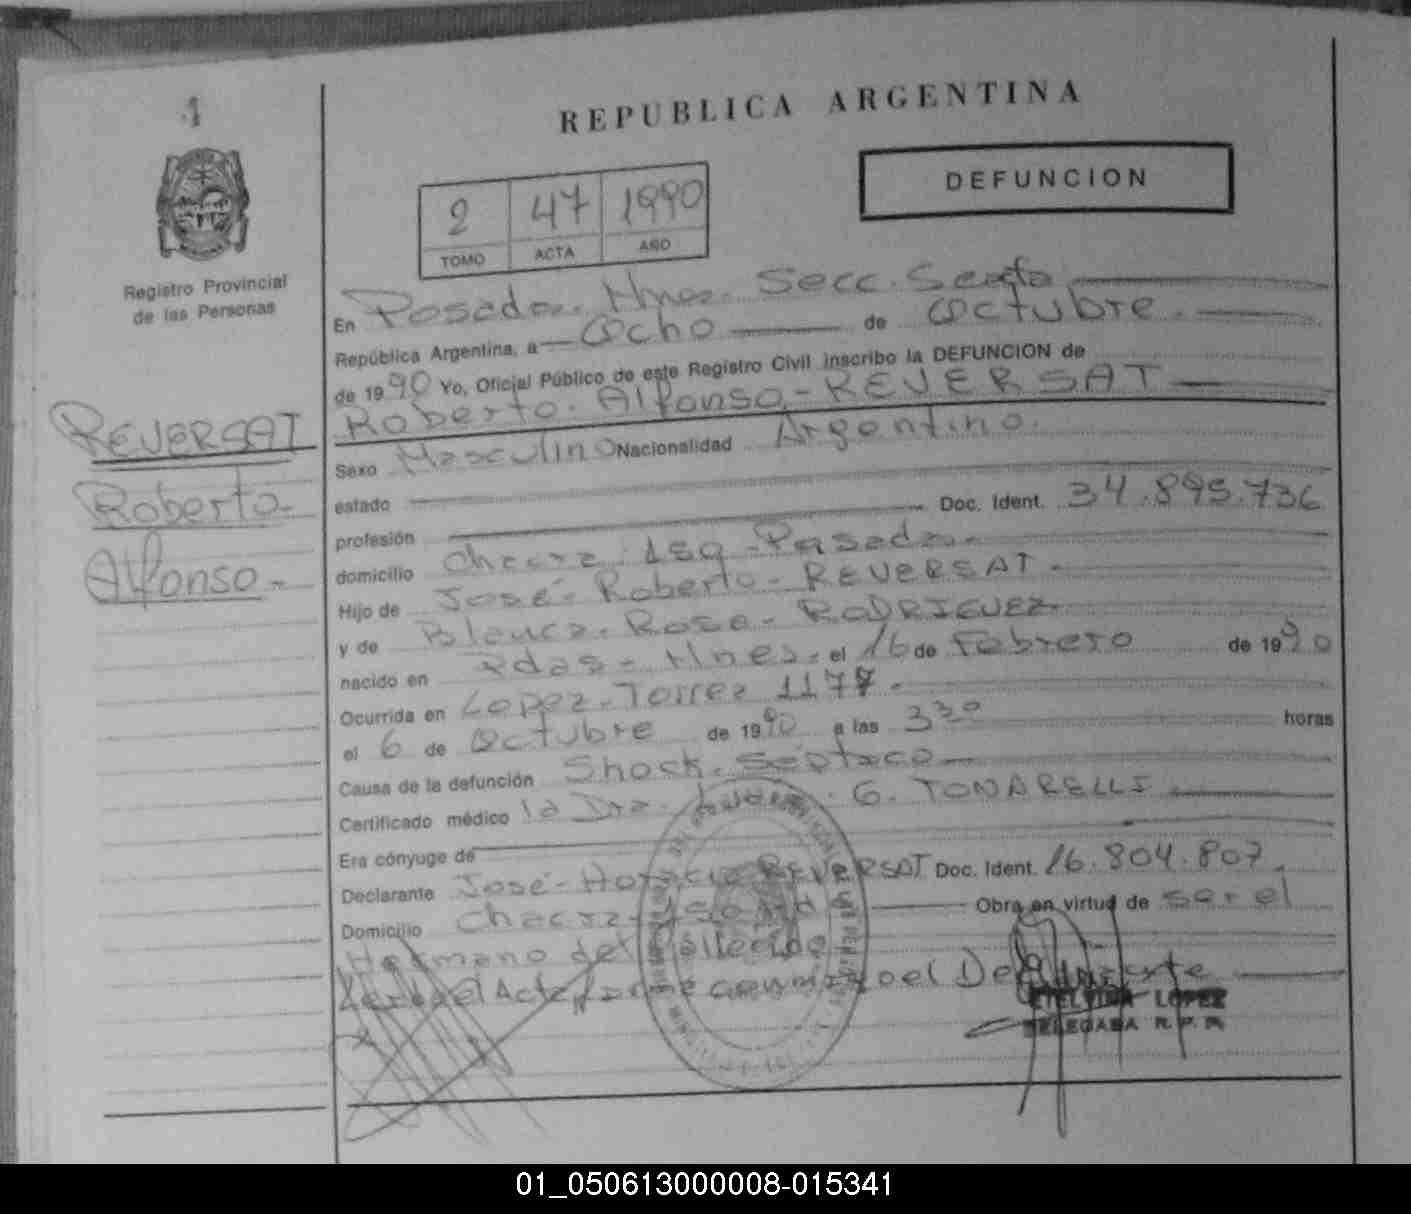 1
REPUBLICA ARGENTINA
DEFUNCION
2 47 1990
TOMO ACTA AÑO
Registro Provincial
de las Personas
En Posadas. Mnes. Secc. Sexta
República Argentina, a Ocho de Octubre.
de 1990 Yo, Oficial Público de este Registro Civil inscribo la DEFUNCION de
Roberto. Alfonso - REVERSAT
REVERSAT
Roberto
Alfonso.-
Sexo Masculino Nacionalidad Argentino.
estado
profesión Doc. Ident. 34.895.736
domicilio Chacra 159 - Posadas.
Hijo de José - Roberto - REVERSAT -
y de Blanca. Rosa - RODRIGUEZ
nacido en Pdas - Mnes. el 16 de Febrero de 1990
Ocurrida en Lopez - Torres 1177.
el 6 de Octubre de 1990 a las 3 30 horas
Causa de la defunción Shock. Séptico
Certificado médico la Dra. G. TONARELLI
Era cónyuge de
Declarante José - Horacio REVERSAT Doc. Ident. 16.804.807.
Domicilio Chacra Obra en virtud de ser el
Hermano del fallecido
Leída el Acta firma conmigo el Declarante
ETELVINA LOPEZ
DELEGADA R. P. P.
01_050613000008-015341